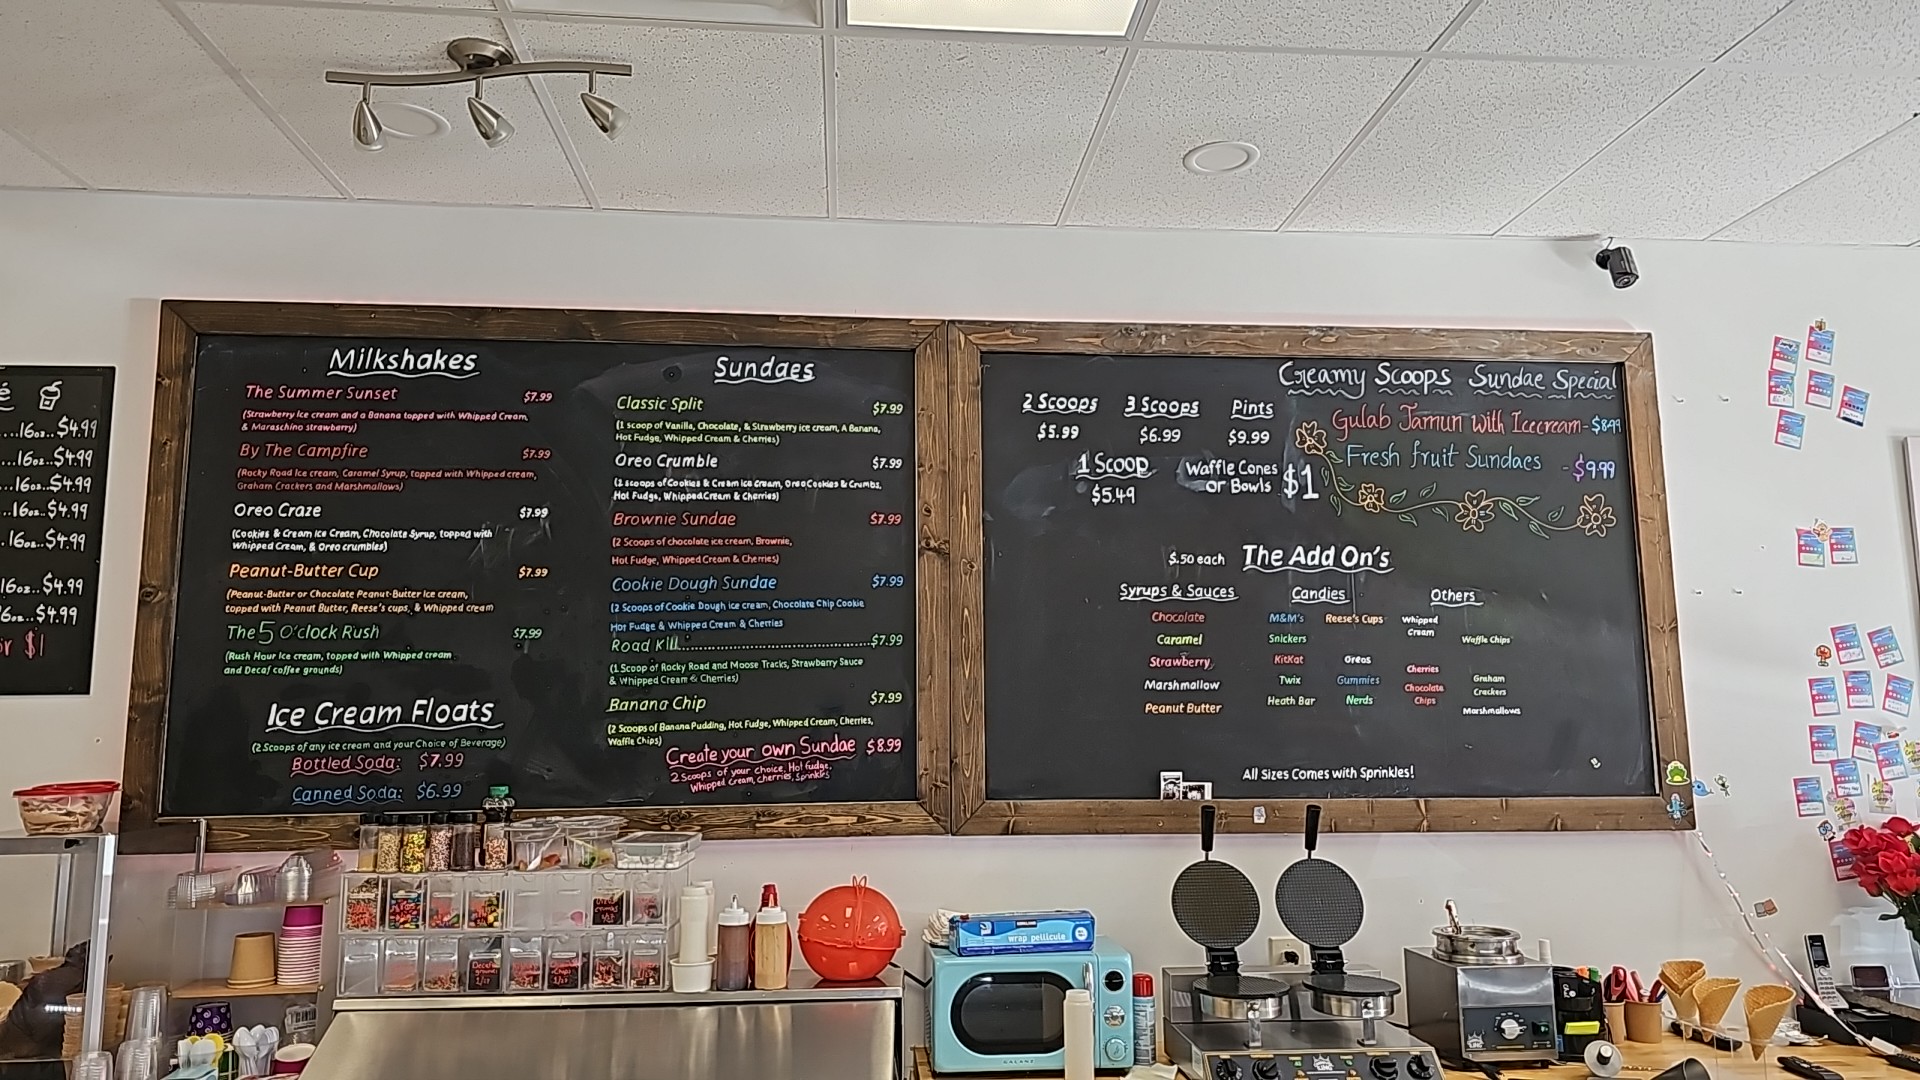 ...16oz..$4.99
...16oz..$4.99
...16oz..$4.99
.16oz..$4.99
.16oz..$4.99
16oz..$4.99
6oz..$4.99
or $1
Milkshakes
The Summer Sunset $7.99
(Strawberry Ice cream and a Banana topped with Whipped Cream,
& Maraschino strawberry)
By The Campfire $7.99
(Rocky Road Ice cream, Caramel Syrup, topped with Whipped cream,
Graham Crackers and Marshmallows)
Oreo Craze $7.99
(Cookies & Cream Ice Cream, Chocolate Syrup, topped with
Whipped Cream, & Oreo crumbles)
Peanut-Butter Cup $7.99
(Peanut-Butter or Chocolate Peanut-Butter Ice cream,
topped with Peanut Butter, Reese's cups, & Whipped cream
The 5 O'clock Rush $7.99
(Rush Hour Ice cream, topped with Whipped cream
and Decaf coffee grounds)
Ice Cream Floats
(2 Scoops of any ice cream and your Choice of Beverage)
Bottled Soda: $7.99
Canned Soda: $6.99
Sundaes
Classic Split $7.99
(1 scoop of Vanilla, Chocolate, & Strawberry ice cream, A Banana,
Hot Fudge, Whipped Cream & Cherries)
Oreo Crumble $7.99
(2 scoops of Cookies & Cream Ice cream, Oreo Cookies & Crumbs,
Hot Fudge, Whipped Cream & Cherries)
Brownie Sundae $7.99
(2 Scoops of chocolate ice cream, Brownie,
Hot Fudge, Whipped Cream & Cherries)
Cookie Dough Sundae $7.99
(2 Scoops of Cookie Dough ice cream, Chocolate Chip Cookie
Hot Fudge & Whipped Cream & Cherries
Road Kill..............................$7.99
(1 Scoop of Rocky Road and Moose Tracks, Strawberry Sauce
& Whipped Cream & Cherries)
Banana Chip $7.99
(2 Scoops of Banana Pudding, Hot Fudge, Whipped Cream, Cherries,
Waffle Chips)
Create your own Sundae $8.99
2 Scoops of your choice, Hot fudge,
Whipped cream, cherries, Sprinkles
Creamy Scoops Sundae Special
Gulab Jamun with Icecream-$8.99
Fresh fruit Sundaes -$9.99
2 Scoops 3 Scoops Pints
$5.99 $6.99 $9.99
1 Scoop
$5.49
Waffle Cones
or Bowls $1
$.50 each The Add On's
Syrups & Sauces
Chocolate
Caramel
Strawberry
Marshmallow
Peanut Butter
Candies
M&M's Reese's Cups
Snickers
KitKat Oreos
Twix Gummies
Heath Bar Nerds
Others
Whipped
Cream
Waffle Chips
Cherries
Chocolate
Chips
Graham
Crackers
Marshmallows
All Sizes Comes with Sprinkles!
KIRKLAND
wrap pellicule
GALANZ